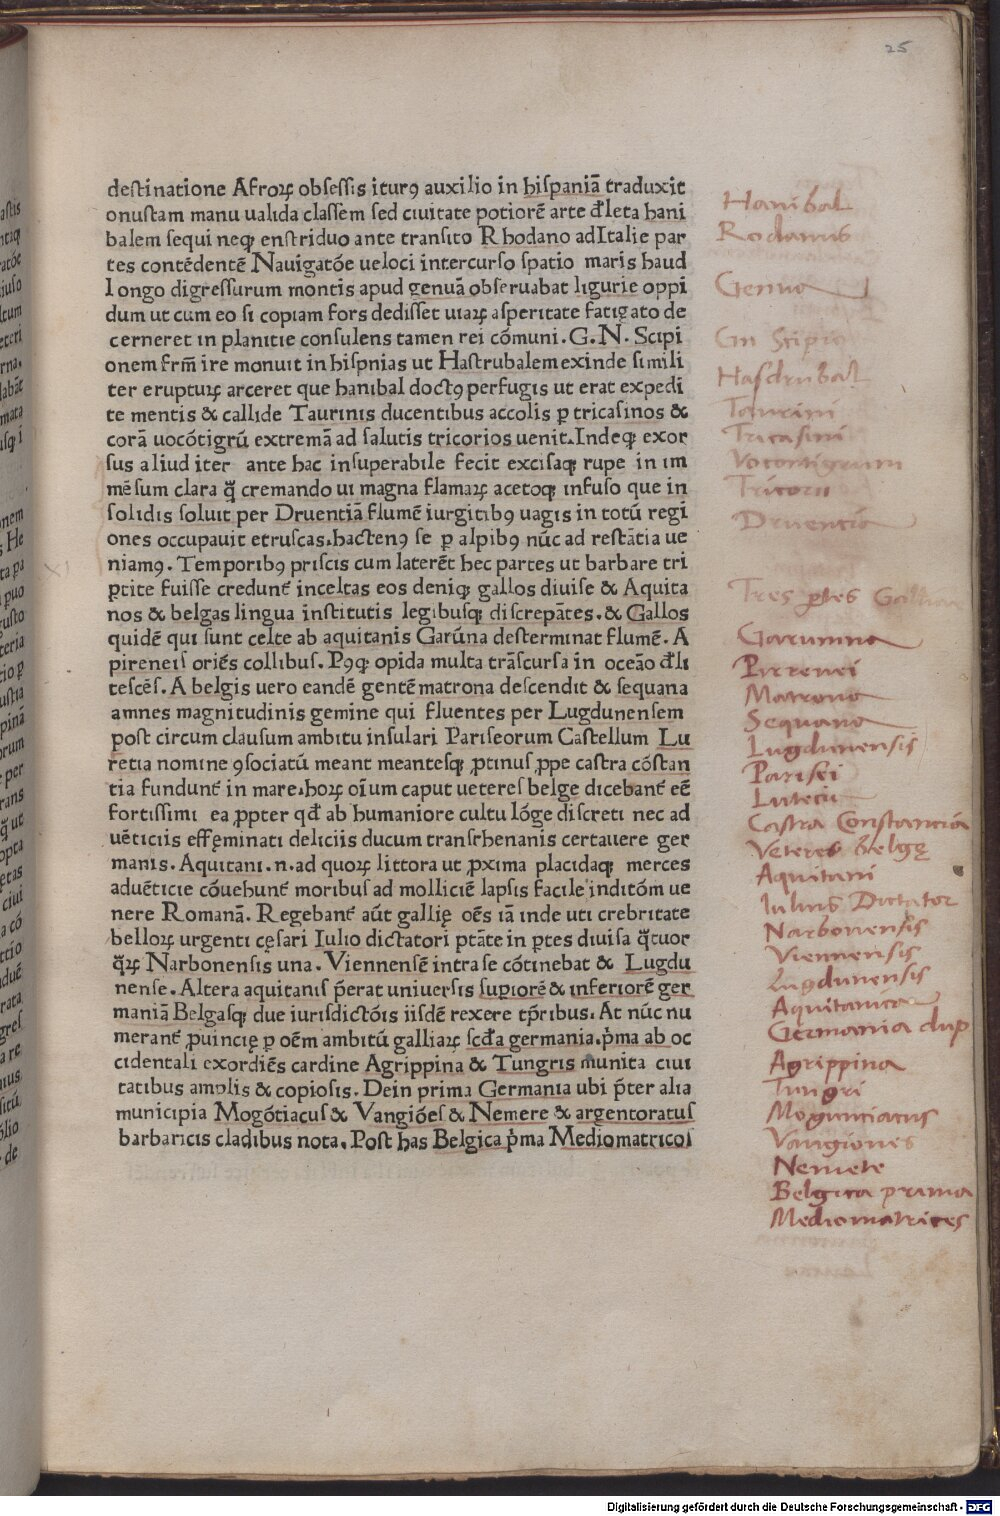 25
destinatione Afroꝝ obsessis iturꝯ auxilio in hispaniā traduxit
onustam manu ualida classem sed ciuitate potiorē arte đleta hani
balem sequi neqꝫ enstriduo ante transito Rhodano adItalie par
tes contēdentē Nauigatōe ueloci intercurso spatio maris haud
longo digressurum montis apud genuā obseruabat ligurie oppi
dum ut cum eo si copiam fors dedisset uiaꝝ asperitate fatigato de
cerneret in planitie consulens tamen rei cōmuni. G. N. Scipi
onem frm̄ ire monuit in hispnias ut Hastrubalem exinde simili
ter erupturꝝ arceret que hanibal doctꝯ perfugis ut erat expedi
te mentis & callide Taurinis ducentibus accolis ꝑ tricasinos &
corā uocōtigrū extremā ad salutis tricorios uenit. Indeqꝫ exor
sus aliud iter ante hac insuperabile fecit excisaqꝫ rupe in im
mēsum clara q̄ cremando ui magna flamaꝝ acetoqꝫ infuso que in
solidis soluit per Druentiā flumē iurgitibꝯ uagis in totū regi
ones occupauit etruscas. hactenꝯ se ꝑ alpibꝯ nūc ad restātia ue
niamꝯ. Temporibꝯ priscis cum laterēt hec partes ut barbare tri
ptite fuisse credunt̄ inceltas eos deniqꝫ gallos diuise & Aquita
nos & belgas lingua institutis legibusqꝫ discrepātes. & Gallos
quidē qui sunt celte ab aquitanis Garūna desterminat flumē. A
pireneis oriēs collibus. Pꝯqꝫ opida multa trāscursa in oceāo đli
tescēs. A belgis uero eandē gentē matrona descendit & sequana
amnes magnitudinis gemine qui fluentes per Lugdunensem
post circum clausum ambitu insulari Pariseorum Castellum Lu
retia nomine ꝯsociatū meant meantesqꝫ ꝓtinus ꝓpe castra cōstan
tia fundunt̄ in mare. hoꝝ oīum caput ueteres belge dicebant̄ eē
fortissimi ea ꝓpter qđ ab humaniore cultu lōge discreti nec ad
uēticiis effęminati deliciis ducum transrhenanis certauere ger
manis. Aquitani. n. ad quoꝝ littora ut ꝓxima placidaqꝫ merces
aduēticie cōuehunt̄ moribus ad molliciē lapsis facile inditōm ue
nere Romanā. Regebant̄ aūt gallię oēs iā inde uti crebritate
belloꝝ urgenti cęsari Iulio dictatori ptāte in ꝑtes diuisa q̄tuor
q̄ꝝ Narbonensis una. Viennensē intra se cōtinebat & Lugdu
nense. Altera aquitanis p̄erat uniuersis supiorē & inferiorē ger
maniā Belgasqꝫ due iurisdictōis iisdē rexere tp̄ribus. At nūc nu
merant̄ ꝓuincię ꝑ oēm ambitū galliaꝝ scđa germania. p̄ma ab oc
cidentali exordiēs cardine Agrippina & Tungris munita ciui
tatibus amplis & copiosis. Dein prima Germania ubi p̄ter alia
municipia Mogōtiacus & Vangiōes & Nemere & argentoratus
barbaricis cladibus nota. Post has Belgica p̄ma Mediomatricos
Hanibal
Rodanus
Genua
Gn Scipio
Hasdrubal
Taurini
Tricasini
Vocontigrum
Tricorii
Druentia
Tres ꝑtes Gallia
Garumna
Pirrenei
Matrona
Sequana
Lugdunensis
Parisei
Lutecia
Castra Constancia
Veteres belgę
Aquitani
Iulius Dictator
Narbonensis
Viennensis
Lugdunensis
Aquitanica
Germania dup
Agrippina
Tungri
Moguntiacus
Vangiones
Nemete
Belgica prima
Mediomatrices
Digitalisierung gefördert durch die Deutsche Forschungsgemeinschaft - DFG